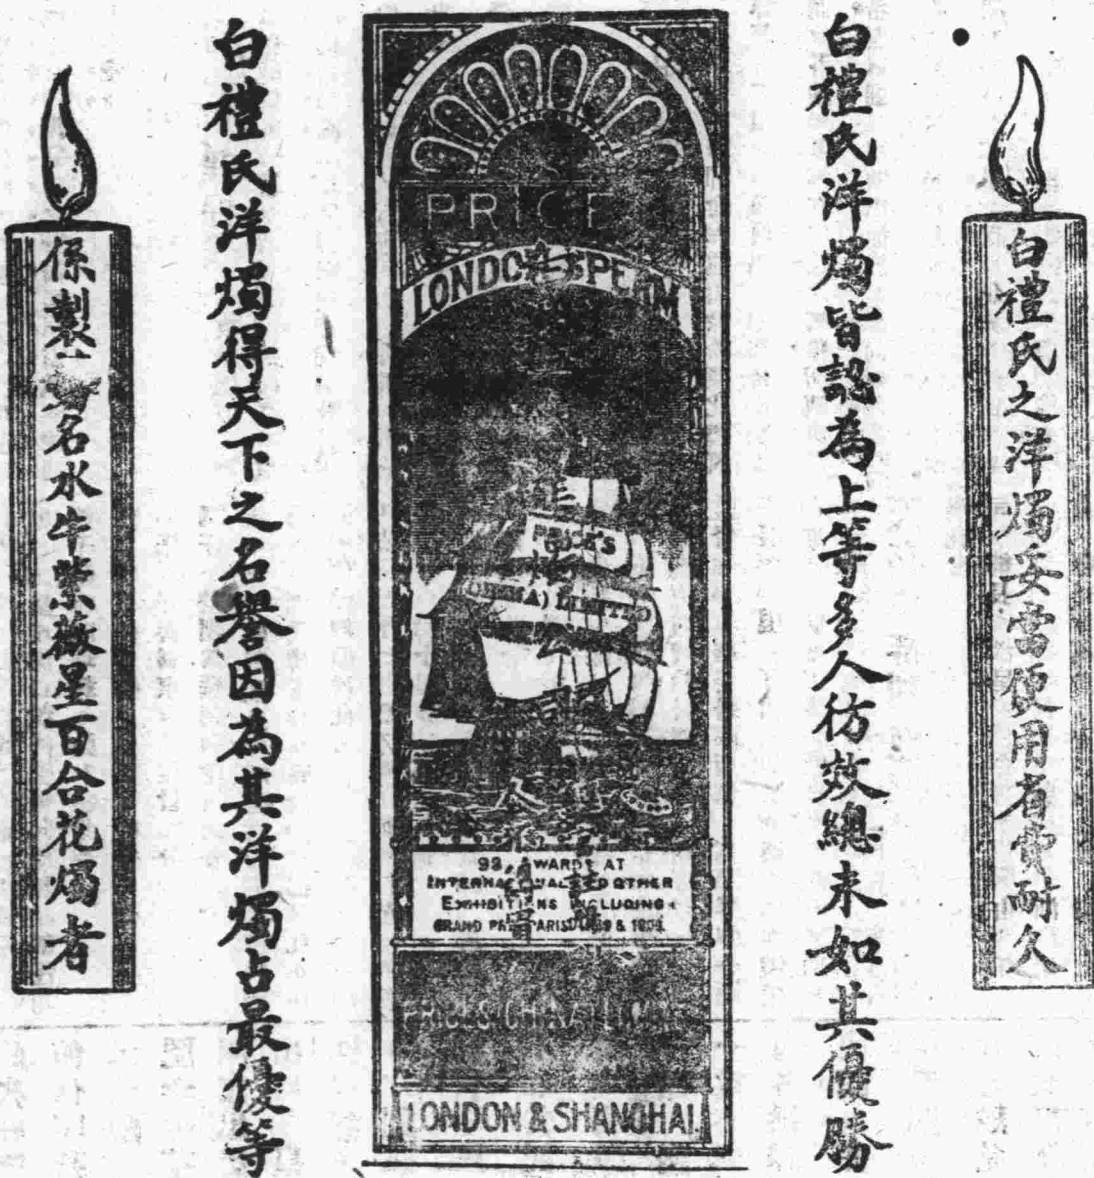 白禮氏之洋燭妥當便用省費耐久
白禮氏洋燭皆認為上等多人彷效總未如其優勝
PRICE
LONDON SPERM
PRICE'S
(CHINA) LIMITED
AWARDS AT
INTERNATIONAL AND OTHER
EXHIBITIONS INCLUDING
GRAND PRIX PARIS
PRICE'S CHINA
LONDON & SHANGHAI
白禮氏洋燭得天下之名譽因為其洋燭占最優等
係製名水牛紫薇星百合花燭者